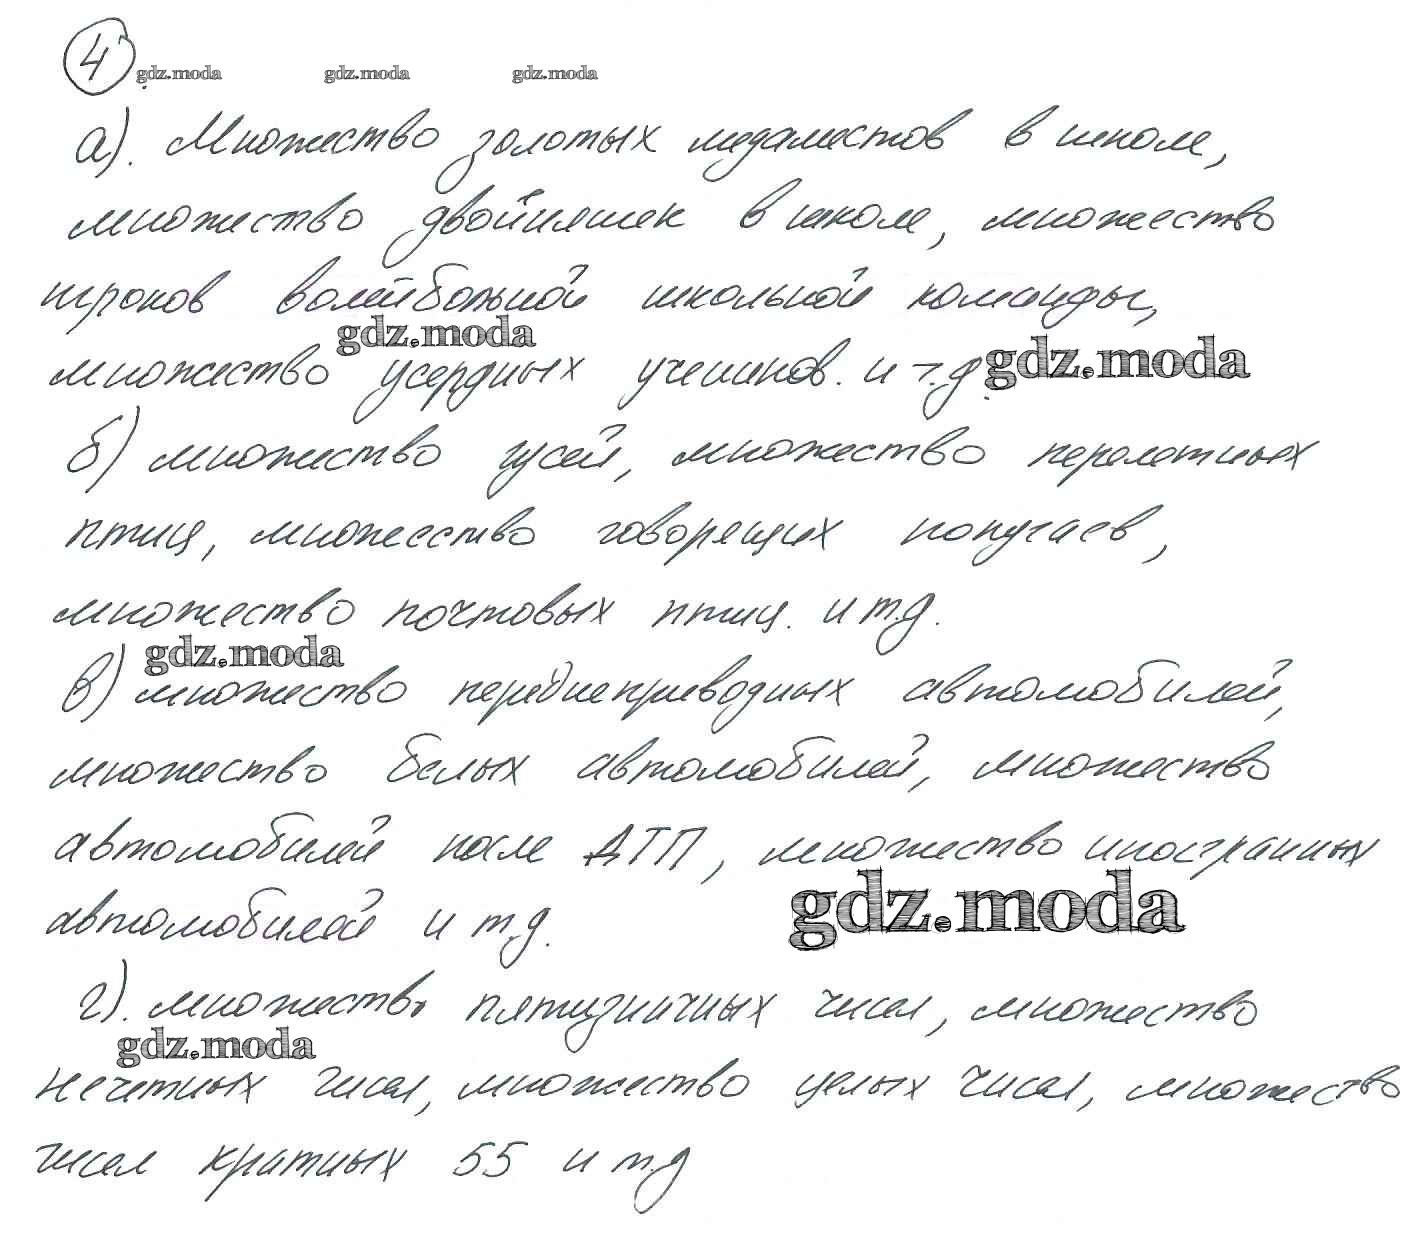 4
gdz.moda gdz.moda gdz.moda
а). Множество золотых медалистов в школе,
множество двойняшек в школе, множество
игроков волейбольной школьной команды,
gdz.moda
множество усердных учеников. и т.д. gdz.moda
б) множество гусей, множество перелетных
птиц, множество говорящих попугаев,
множество почтовых птиц. и т.д.
gdz.moda
в) множество переднеприводных автомобилей,
множество белых автомобилей, множество
автомобилей после ДТП, множество иностранных
автомобилей и т.д. gdz.moda
г). множество пятизначных чисел, множество
gdz.moda
нечетных чисел, множество целых чисел, множество
чисел кратных 55 и т.д